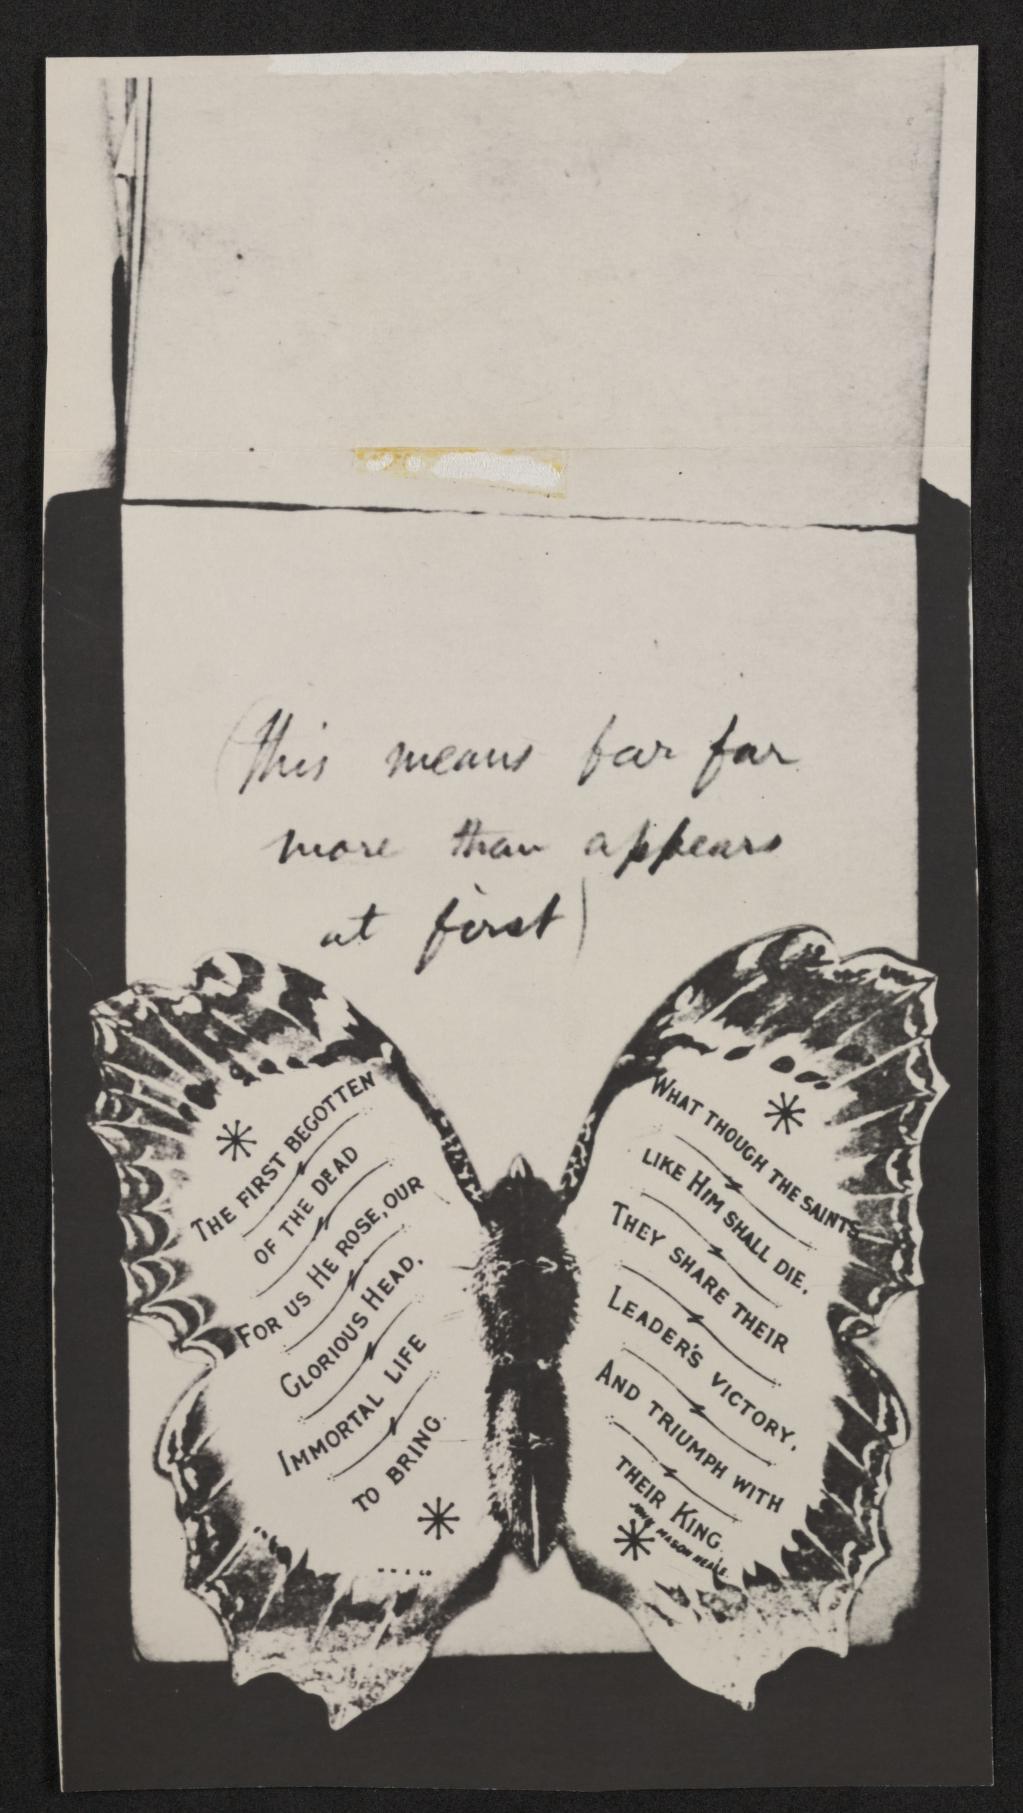 (This means far far
more than appears
at first)
THE FIRST BEGOTTEN
OF THE DEAD
FOR US HE ROSE, OUR
GLORIOUS HEAD,
IMMORTAL LIFE
TO BRING.
WHAT THOUGH THE SAINTS
LIKE HIM SHALL DIE,
THEY SHARE THEIR
LEADER'S VICTORY,
AND TRIUMPH WITH
THEIR KING.
JOHN MASON NEALE